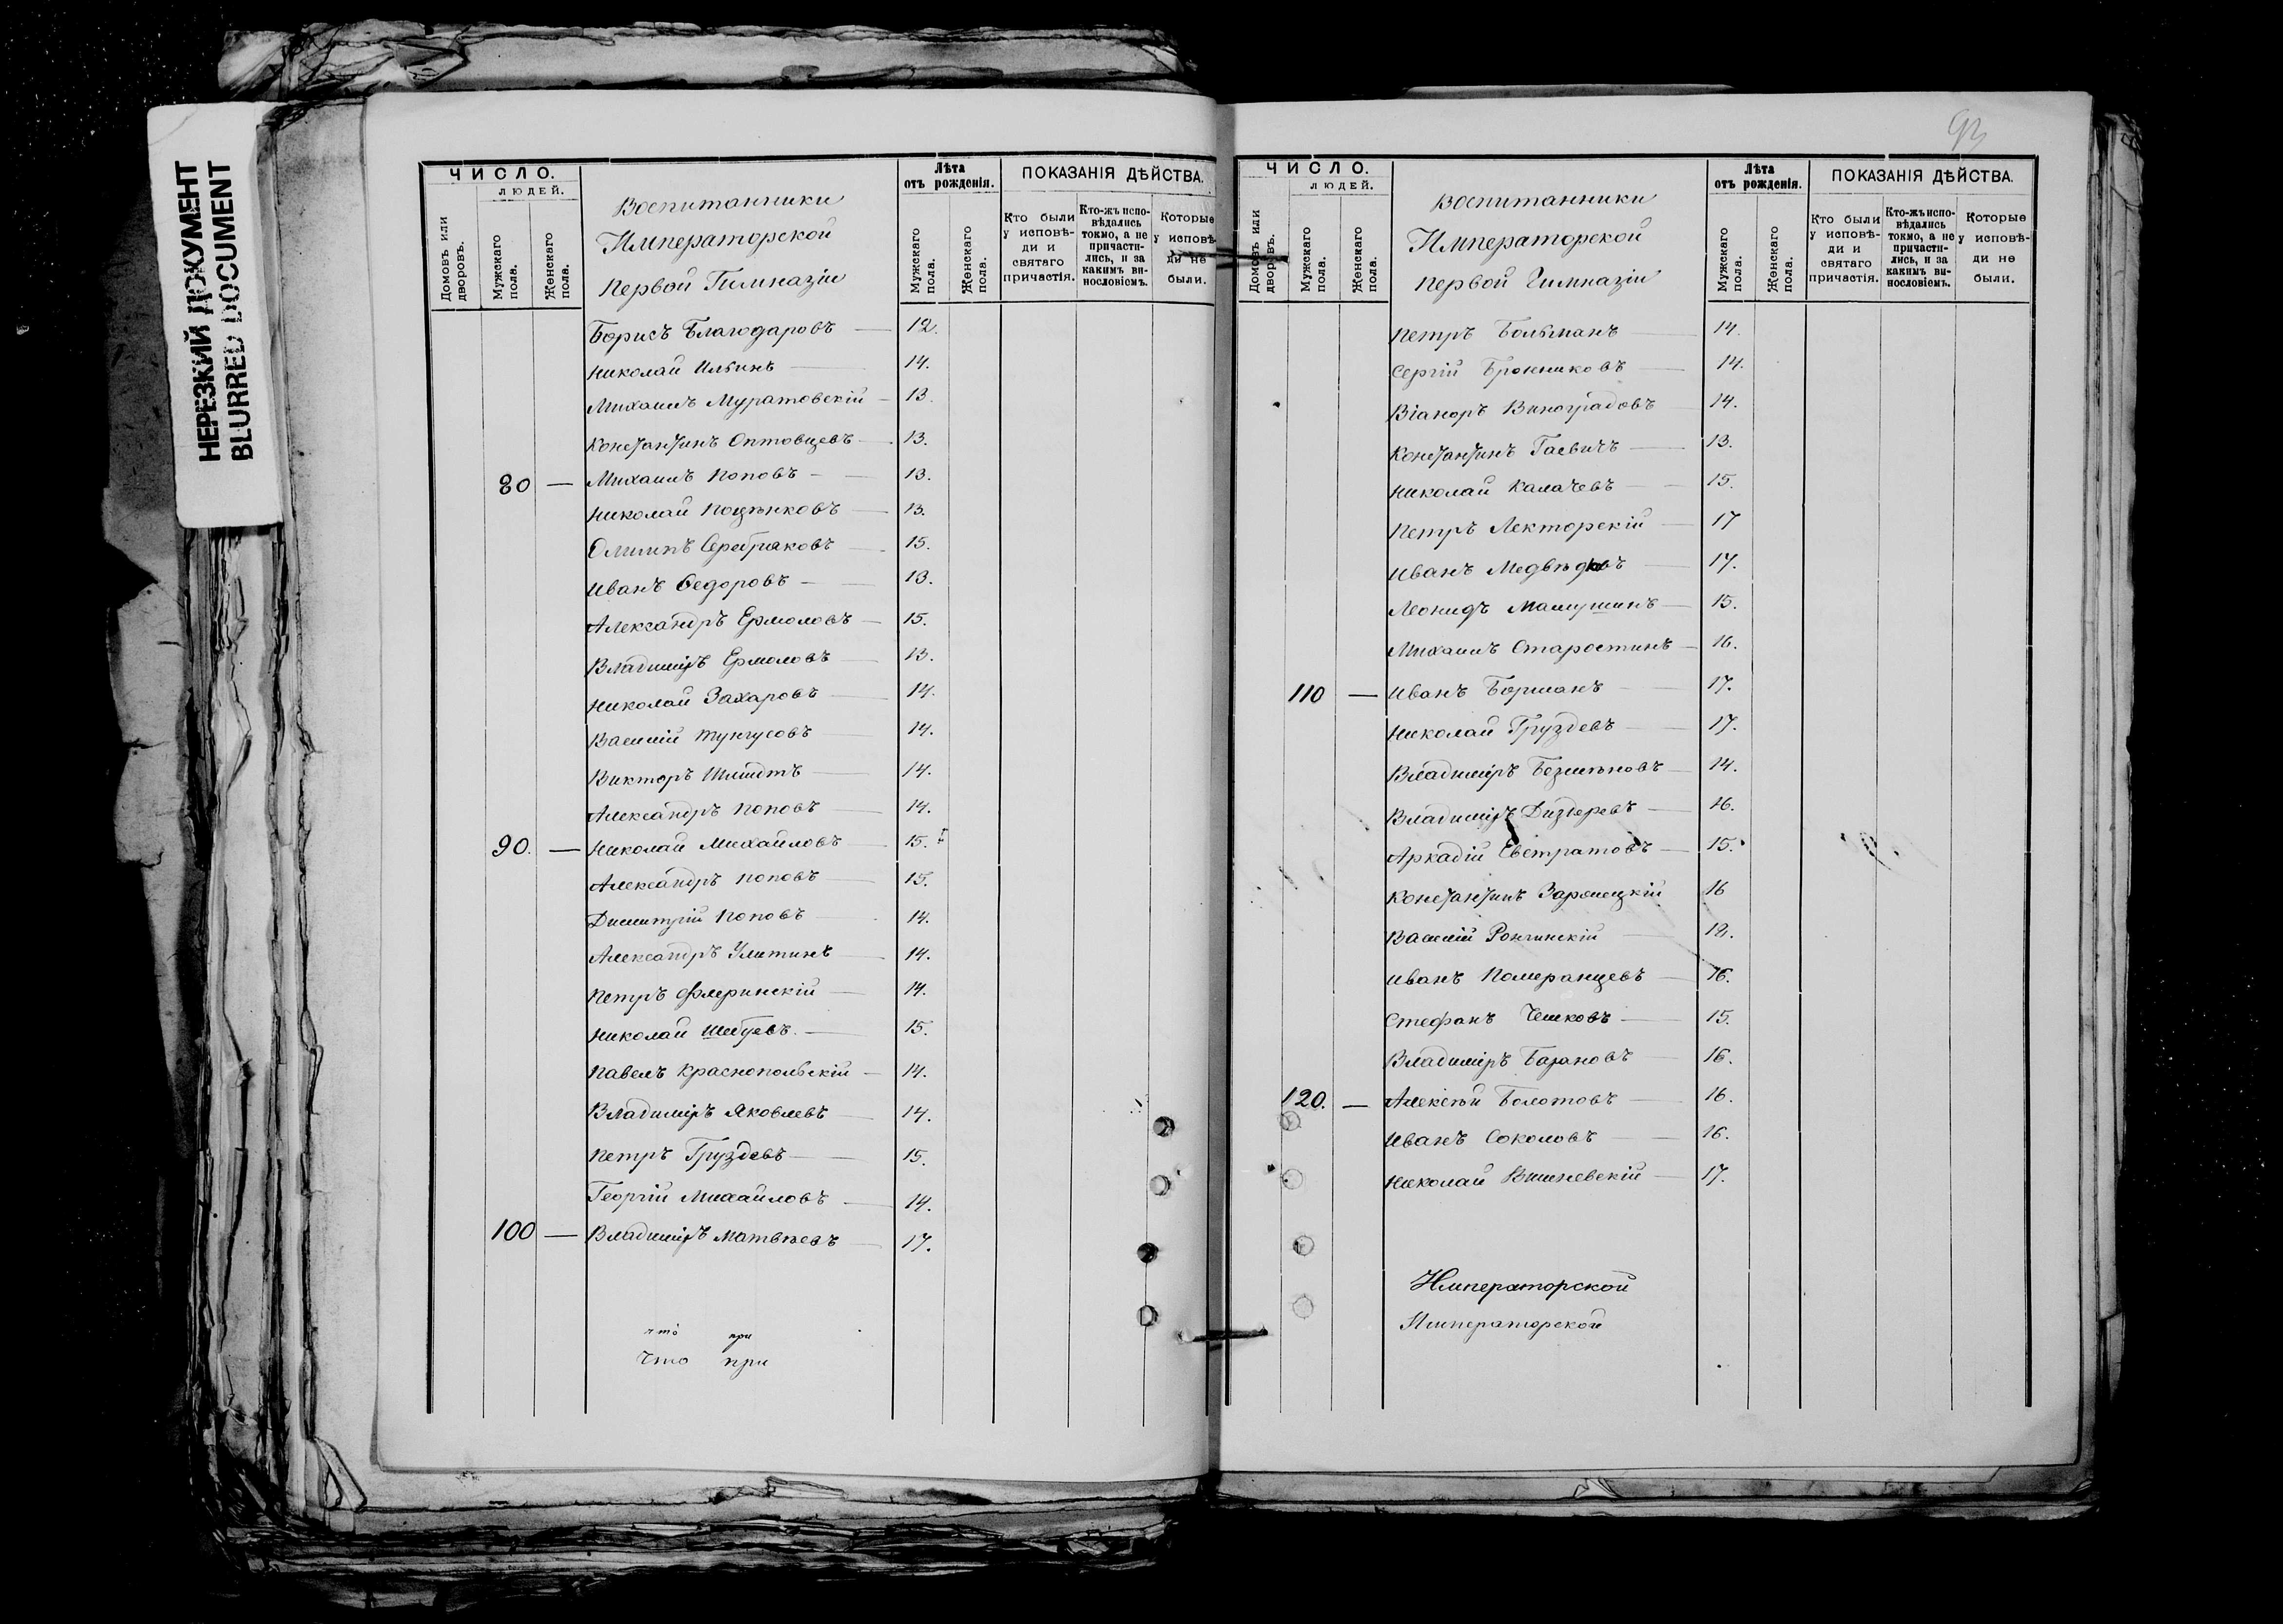 НЕРЕЗКИЙ ДОКУМЕНТ
BLURRED DOCUMENT
ЧИСЛО.
людей.
Домовъ или дворовъ.
Мужскаго пола.
Женскаго пола.
Воспитанники
Императорской
Первой Гимназіи
Лѣта
отъ рожденія.
Мужскаго пола.
Женскаго пола.
ПОКАЗАНІЯ ДѢЙСТВА.
Кто были у исповѣди и святаго причастія.
Кто-жъ исповѣдались токмо, а не причастились, и за какимъ винословіемъ.
Которые у исповѣди не были.
Борисъ Благодаровъ — 12.
Николай Ильинъ — 14.
Михаилъ Муратовскій — 13
Константинъ Оптовцевъ — 13.
80 — Михаилъ Поповъ — 13.
Николай Поцѣнковъ — 13.
Филипъ Серебряковъ — 15.
Иванъ Ѳедоровъ — 13.
Александръ Ермоловъ — 15.
Владиміръ Ермоловъ — 13.
Николай Захаровъ — 14.
Василій Тунгусовъ — 14.
Викторъ Шмидтъ — 14.
Александръ Поповъ — 14.
90. — Николай Михайловъ — 15.
Александръ Поповъ — 15.
Димитрій Поповъ — 14.
Александръ Улитинъ — 14.
Петръ Флеринскій — 14.
Николай Шебуевъ. — 15.
Павелъ Краснопольскій — 14.
Владиміръ Яковлевъ — 14.
Петръ Груздевъ — 15.
Георгій Михайловъ — 14.
100 — Владиміръ Матвѣевъ — 17.
что при
Что при
ЧИСЛО.
людей.
Домовъ или дворовъ.
Мужскаго пола.
Женскаго пола.
Воспитанники
Императорской
Первой Гимназіи
Лѣта
отъ рожденія.
Мужскаго пола.
Женскаго пола.
ПОКАЗАНІЯ ДѢЙСТВА.
Кто были у исповѣди и святаго причастія.
Кто-жъ исповѣдались токмо, а не причастились, и за какимъ винословіемъ.
Которые у исповѣди не были.
Петръ Больманъ — 14.
Сергій Бронниковъ — 14.
Віаноръ Виноградовъ — 14.
Константинъ Гаевичъ — 13.
Николай Калачевъ — 15.
Петръ Лекторскій — 17
Иванъ — 17.
Леонидъ Мамушинъ — 15.
Михаилъ Старостинъ — 16.
110 — Иванъ Борманъ — 17.
Николай Груздевъ — 17.
Владиміръ Безмѣновъ — 14.
Владиміръ — 16.
Аркадій Евстратовъ — 15.
Константинъ Зарѣцкій 16
Василій — 12.
Иванъ Померанцевъ — 16.
Стефанъ Чешковъ — 15.
Владиміръ Базановъ — 16.
120. — Алексѣй Болотовъ — 16.
Иванъ Соколовъ — 16.
Николай Вишневскій — 17.
Императорской
Императорской